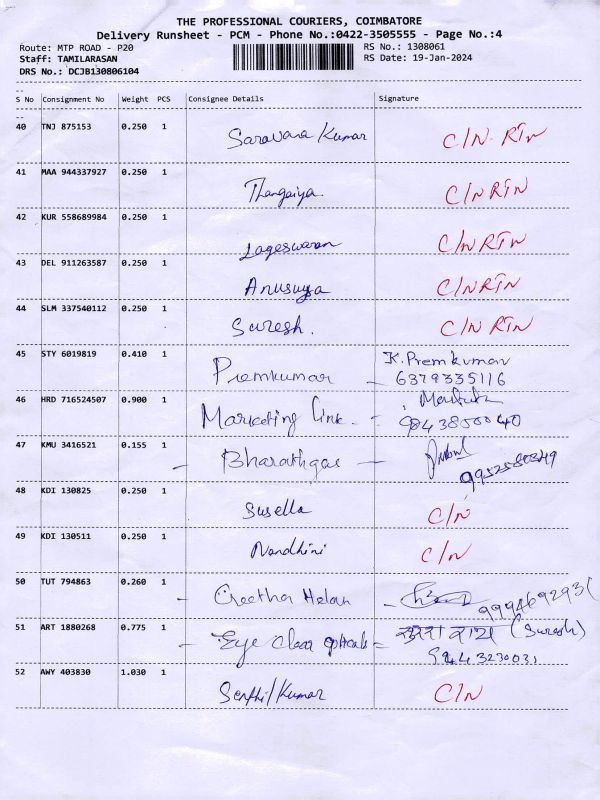 THE PROFESSIONAL COURIERS, COIMBATORE
Delivery Runsheet - PCM - Phone No.:0422-3505555 - Page No.:4
Route: MTP ROAD - P20 RS No.: 1308061
Staff: TAMILARASAN RS Date: 19-Jan-2024
DRS No.: DCJB130806104
S No Consignment No Weight PCS Consignee Details Signature
40 TNJ 875153 0.250 1 Saravana Kumar C/N RTN
41 MAA 944337927 0.250 1 Thangaiya. C/N RTN
42 KUR 558689984 0.250 1 Logeswaran C/N RTN
43 DEL 911263587 0.250 1 Anusuya C/N RTN
44 SLM 337540112 0.250 1 Suresh. C/N RTN
45 STY 6019819 0.410 1 Premkumar - K. Premkumar
6379335116
46 HRD 716524507 0.900 1 Marketing link. -
9843850040
47 KMU 3416521 0.155 1 - Bharathgas -
9952580349
48 KDI 130825 0.250 1 Susella C/N
49 KDI 130511 0.250 1 Nandhini C/N
50 TUT 794863 0.260 1 - Geetha Helan -
51 ART 1880268 0.775 1 - Eye Clear opticals - (Suresh)
9443230031
52 AWY 403830 1.030 1 Senthil Kumar C/N